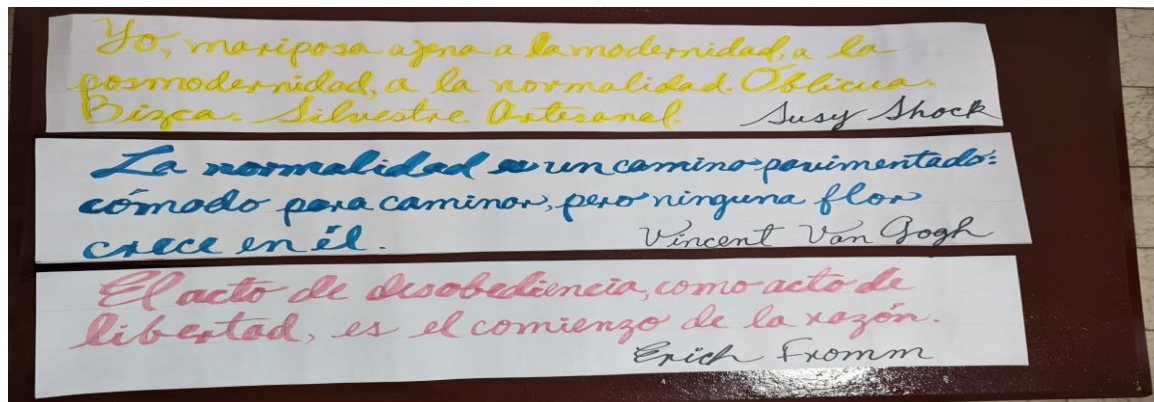 Yo, mariposa ajena a la modernidad, a la
posmodernidad, a la normalidad. Oblicua.
Bizca. Silvestre. Artesanal. Susy Shock
La normalidad es un camino pavimentado:
cómodo para caminar, pero ninguna flor
crece en él. Vincent Van Gogh
El acto de desobediencia, como acto de
libertad, es el comienzo de la razón.
Erich Fromm